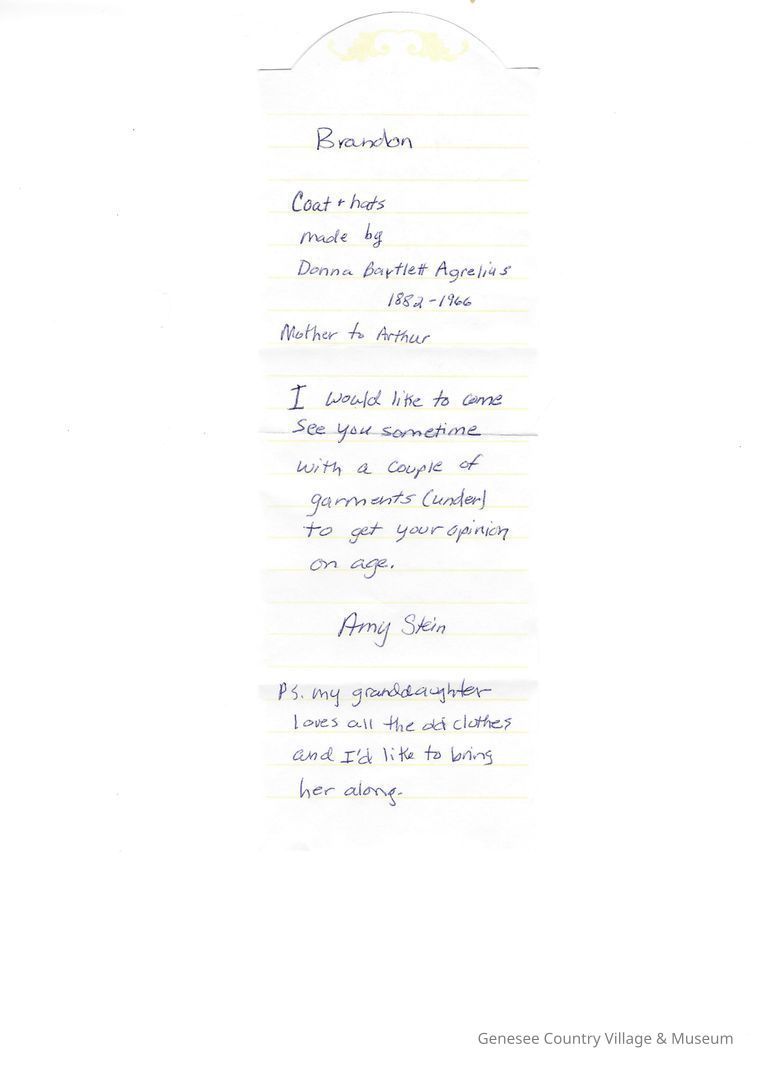 Brandon
Coat + hats
made by
Donna Bartlett Agrelius
1882-1966
Mother to Arthur
I would like to come
see you sometime
with a couple of
garments (under)
to get your opinion
on age.
Amy Stein
Ps. my granddaughter
loves all the old clothes
and I'd like to bring
her along.
Genesee Country Village & Museum